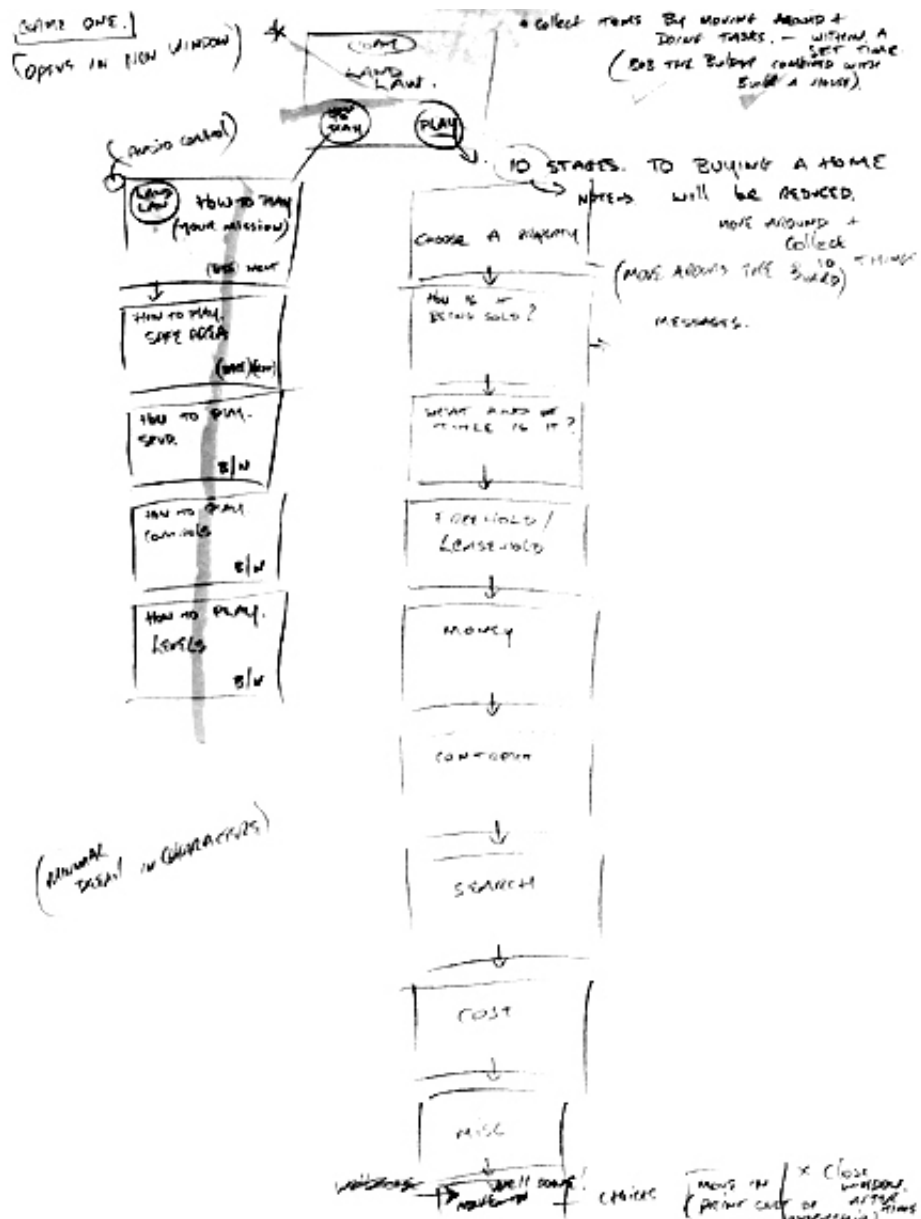 GAME ONE.
(OPENS IN NEW WINDOW)
LAND
LAW.
HOW
TO
PLAY
PLAY
* COLLECT ITEMS BY MOVING AROUND +
DOING TASKS. — WITHIN A
SET TIME.
(BOB THE BUILDER COMBINED WITH
BUILD A HOUSE).
(AUDIO CONTROL)
LAND
LAW
HOW TO PLAY
(YOUR MISSION)
NEXT
HOW TO PLAY.
SAFE AREA
HOW TO PLAY.
B/N
HOW TO PLAY
CONTROLS
B/N
HOW TO PLAY.
LEVELS
B/N
10 STAGES. TO BUYING A HOME
will be REDUCED.
MOVE AROUND +
Collect
10
THINGS
(MOVE AROUND THE BOARD)
MESSAGES.
CHOOSE A PROPERTY
HOW IS IT
BEING SOLD?
WHAT KIND OF
TITLE IS IT?
FREEHOLD/
LEASEHOLD
MONEY
SEARCH
COST
MISC
IN CHARACTERS)
Well DONE!
CHOICES
MOVE IN
PRINT OUT OF
X Close
WINDOW.
AFTER